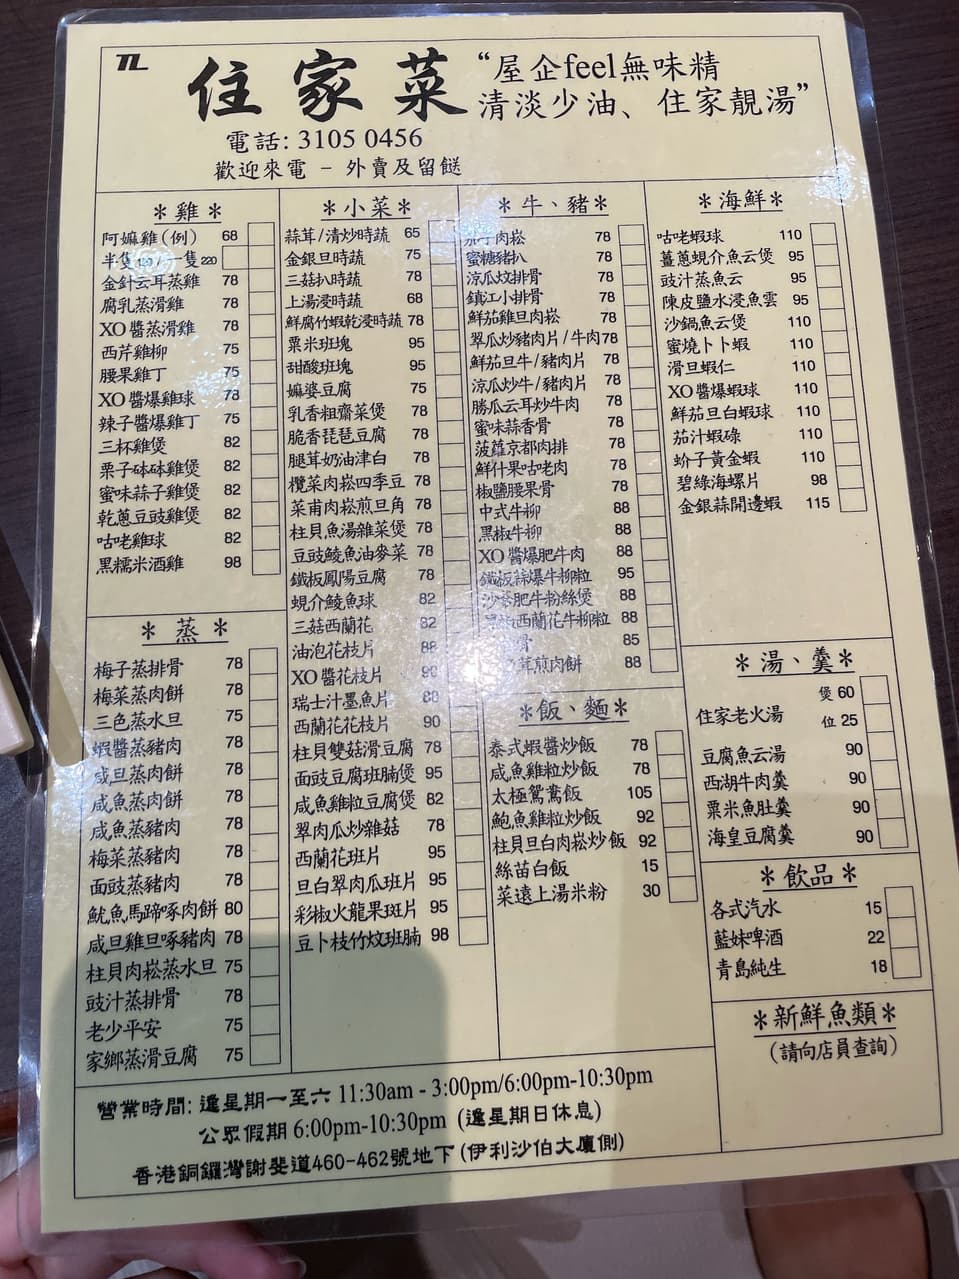 TL
住家菜
“屋企feel無味精
清淡少油、住家靚湯”
電話: 3105 0456
歡迎來電 - 外賣及留餸
＊雞＊
阿嫲雞(例) 68
半隻 / 一隻 220
金針云耳蒸雞 78
腐乳蒸滑雞 78
XO醬蒸滑雞 78
西芹雞柳 75
腰果雞丁 75
XO醬爆雞球 78
辣子醬爆雞丁 75
三杯雞煲 82
栗子砵砵雞煲 82
蜜味蒜子雞煲 82
乾蔥豆豉雞煲 82
咕咾雞球 82
黑糯米酒雞 98
＊蒸＊
梅子蒸排骨 78
梅菜蒸肉餅 78
三色蒸水旦 75
蝦醬蒸豬肉 78
咸旦蒸肉餅 78
咸魚蒸肉餅 78
咸魚蒸豬肉 78
梅菜蒸豬肉 78
面豉蒸豬肉 78
魷魚馬蹄啄肉餅 80
咸旦雞旦啄豬肉 78
柱貝肉崧蒸水旦 75
豉汁蒸排骨 78
老少平安 75
家鄉蒸滑豆腐 75
＊小菜＊
蒜茸/清炒時蔬 65
金銀旦時蔬 75
三菇扒時蔬 78
上湯浸時蔬 68
鮮腐竹蝦乾浸時蔬 78
粟米班塊 95
甜酸班塊 95
嫲婆豆腐 75
乳香粗齋菜煲 78
脆香琵琶豆腐 78
腿茸奶油津白 78
欖菜肉崧四季豆 78
菜甫肉崧煎旦角 78
柱貝魚湯雜菜煲 78
豆豉鯪魚油麥菜 78
鐵板鳳陽豆腐 78
蜆介鯪魚球 82
三菇西蘭花 82
油泡花枝片
XO醬花枝片
瑞士汁墨魚片
西蘭花花枝片 90
柱貝雙菇滑豆腐 78
面豉豆腐班腩煲 95
咸魚雞粒豆腐煲 82
翠肉瓜炒雜菇 78
西蘭花班片 95
旦白翠肉瓜班片 95
彩椒火龍果斑片 95
豆卜枝竹炆班腩 98
＊牛、豬＊
茄子肉崧 78
蜜糖豬扒 78
涼瓜炆排骨 78
鎮江小排骨 78
鮮茄雞旦肉崧 78
翠瓜炒豬肉片/牛肉 78
鮮茄旦牛/豬肉片 78
涼瓜炒牛/豬肉片 78
勝瓜云耳炒牛肉 78
蜜味蒜香骨 78
菠蘿京都肉排 78
鮮什果咕咾肉 78
椒鹽腰果骨 78
中式牛柳 88
黑椒牛柳 88
XO醬爆肥牛肉 88
鐵板蒜爆牛柳粒 95
沙嗲肥牛粉絲煲 88
西蘭花牛柳粒 88
骨 85
茸煎肉餅 88
＊飯、麵＊
泰式蝦醬炒飯 78
咸魚雞粒炒飯 78
太極鴛鴦飯 105
鮑魚雞粒炒飯 92
柱貝旦白肉崧炒飯 92
絲苗白飯 15
菜遠上湯米粉 30
＊海鮮＊
咕咾蝦球 110
薑蔥蜆介魚云煲 95
豉汁蒸魚云 95
陳皮鹽水浸魚雲 95
沙鍋魚云煲 110
蜜燒卜卜蝦 110
滑旦蝦仁 110
XO醬爆蝦球 110
鮮茄旦白蝦球 110
茄汁蝦碌 110
蚧子黃金蝦 110
碧綠海螺片 98
金銀蒜開邊蝦 115
＊湯、羹＊
煲 60
住家老火湯
位 25
豆腐魚云湯 90
西湖牛肉羹 90
粟米魚肚羹 90
海皇豆腐羹 90
＊飲品＊
各式汽水 15
藍妹啤酒 22
青島純生 18
＊新鮮魚類＊
(請向店員查詢)
營業時間: 逢星期一至六 11:30am - 3:00pm/6:00pm-10:30pm
公眾假期 6:00pm-10:30pm (逢星期日休息)
香港銅鑼灣謝斐道460-462號地下(伊利沙伯大廈側)